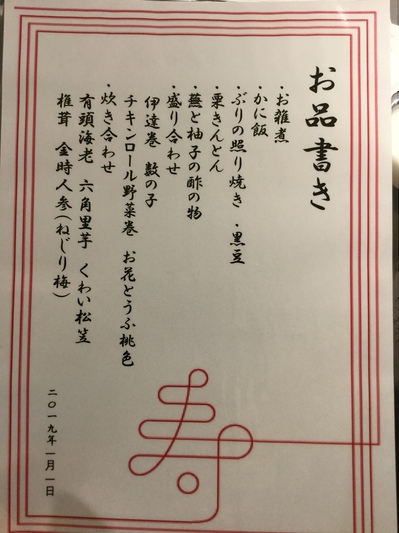 お品書き
・お雑煮
・かに飯
・ぶりの照り焼き ・黒豆
・栗きんとん
・蕪と柚子の酢の物
・盛り合わせ
伊達巻 数の子
チキンロール野菜巻 お花とうふ桃色
・炊き合わせ
有頭海老 六角里芋 くわい松笠
椎茸 金時人参(ねじり梅)
寿
二〇一九年一月一日